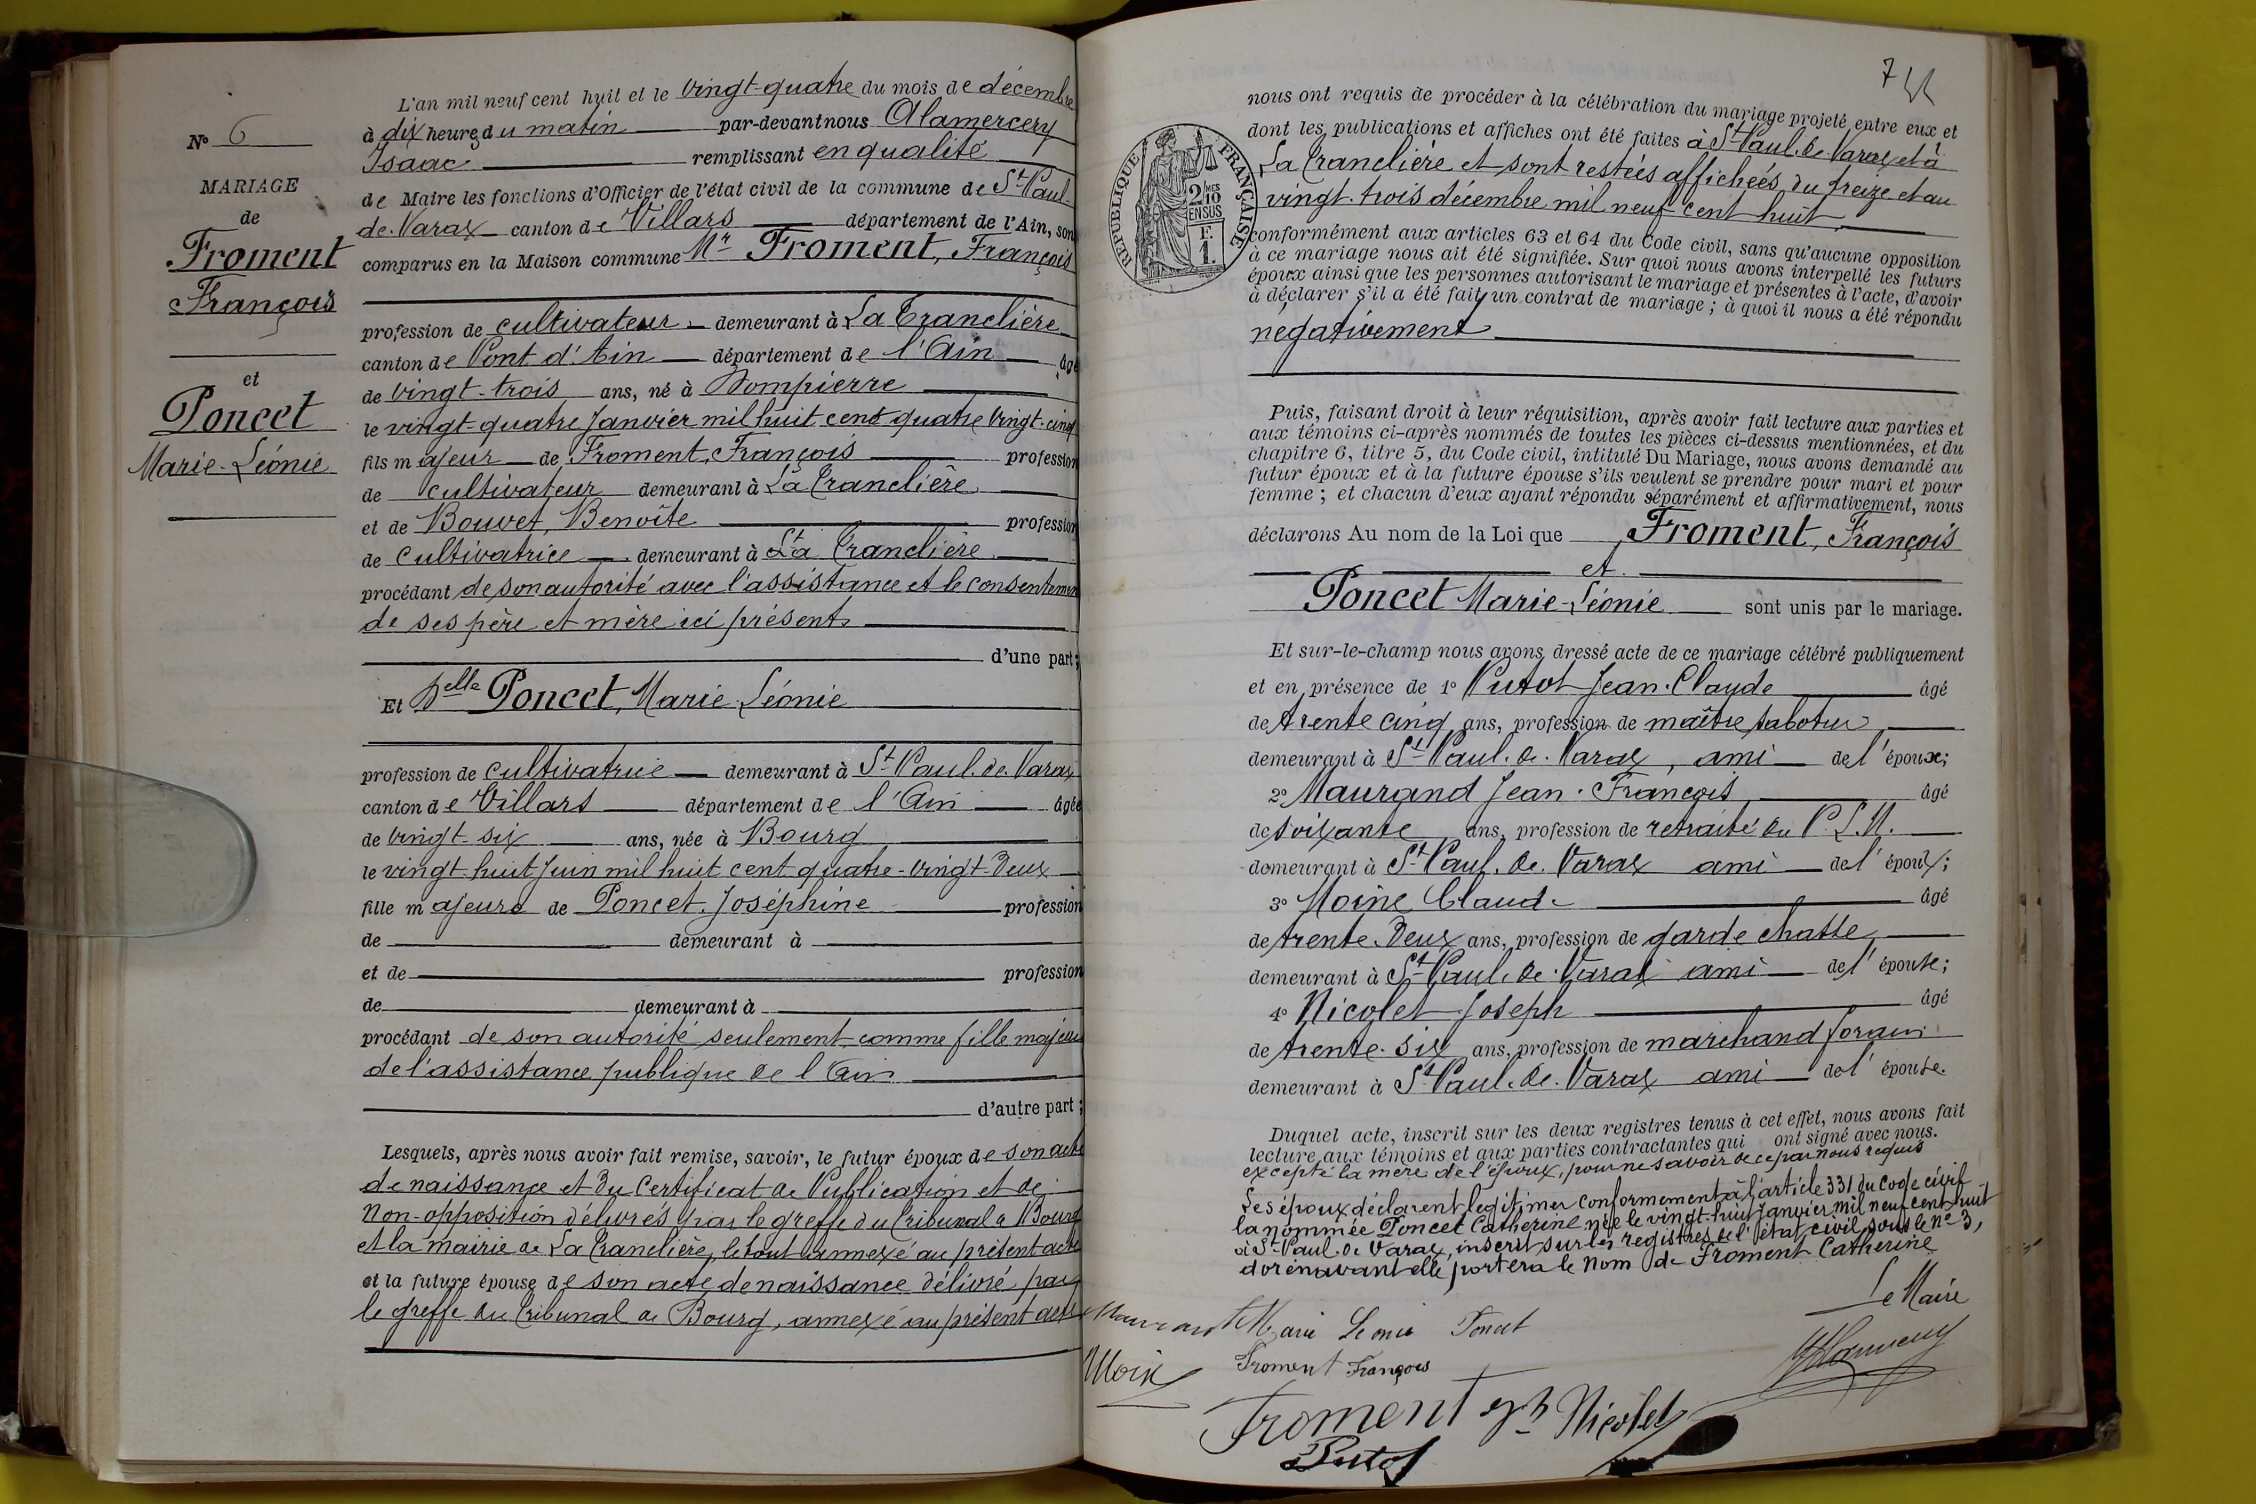 N° 6
MARIAGE
de
Froment
François
et
Poncet
Marie-Léonie
L'an mil neuf cent huit et le vingt-quatre du mois de décembre
à dix heures du matin par-devant nous Alamercery
Isaac remplissant en qualité
de Maire les fonctions d'Officier de l'état civil de la commune de St Paul-
de-Varax canton de Villars département de l'Ain, son
comparus en la Maison commune Mr Froment, François
profession de cultivateur demeurant à La Tranclière
canton de Pont d'Ain département de l'Ain âgé
de vingt-trois ans, né à Dompierre
le vingt-quatre Janvier mil huit cent quatre vingt-cinq
fils majeur de Froment, François profession
de cultivateur demeurant à La Tranclière
et de Bouvet, Benoîte profession
de cultivatrice demeurant à La Tranclière
procédant de son autorité avec l'assistance et le consentement
de ses père et mère ici présents
d'une part;
Et Delle Poncet, Marie-Léonie
profession de cultivatrice demeurant à St Paul-de-Varax
canton de Villars département de l'Ain âgée
de vingt-six ans, née à Bourg
le vingt-huit Juin mil huit cent quatre-vingt-deux
fille majeure de Poncet, Joséphine profession
de demeurant à
et de profession
de demeurant à
procédant de son autorité seulement comme fille majeure
de l'assistance publique de l'Ain
d'autre part;
Lesquels, après nous avoir fait remise, savoir, le futur époux de son acte
de naissance et du Certificat de Publication et de
Non-opposition délivrés par le greffe du Tribunal de Bourg
et la mairie de La Tranclière, le tout annexé au présent acte
et la future épouse de son acte de naissance délivré par
le greffe du Tribunal de Bourg, annexé au présent acte
RÉPUBLIQUE FRANÇAISE
2 MES
10
EN SUS
F.
1.
nous ont requis de procéder à la célébration du mariage projeté entre eux et
dont les publications et affiches ont été faites à St Paul-de-Varax et à
La Tranclière et sont restées affichées du treize et au
vingt-trois décembre mil neuf cent huit,
conformément aux articles 63 et 64 du Code civil, sans qu'aucune opposition
à ce mariage nous ait été signifiée. Sur quoi nous avons interpellé les futurs
époux ainsi que les personnes autorisant le mariage et présentes à l'acte, d'avoir
à déclarer s'il a été fait un contrat de mariage; à quoi il nous a été répondu
négativement
Puis, faisant droit à leur réquisition, après avoir fait lecture aux parties et
aux témoins ci-après nommés de toutes les pièces ci-dessus mentionnées, et du
chapitre 6, titre 5, du Code civil, intitulé Du Mariage, nous avons demandé au
futur époux et à la future épouse s'ils veulent se prendre pour mari et pour
femme; et chacun d'eux ayant répondu séparément et affirmativement, nous
déclarons Au nom de la Loi que Froment, François
et
Poncet Marie-Léonie sont unis par le mariage.
Et sur-le-champ nous avons dressé acte de ce mariage célébré publiquement
et en présence de 1° Putot Jean-Claude âgé
de trente cinq ans, profession de maître sabotier
demeurant à St Paul-de-Varax, ami de l'époux;
2° Maurand Jean-François âgé
de soixante ans, profession de retraité du P.L.M.
demeurant à St Paul-de-Varax ami de l'époux;
3° Moine Claude âgé
de trente-deux ans, profession de garde chasse
demeurant à St Paul-de-Varax ami de l'épouse;
4° Nicolet Joseph âgé
de trente-six ans, profession de marchand forain
demeurant à St Paul-de-Varax ami de l'épouse.
Duquel acte, inscrit sur les deux registres tenus à cet effet, nous avons fait
lecture aux témoins et aux parties contractantes qui ont signé avec nous.
excepté la mère de l'époux, pour ne savoir de ce par nous requis
Les époux déclarent légitimer conformément à l'article 331 du code civil
la nommée Poncet Catherine née le vingt-huit Janvier mil neuf cent huit
à St Paul-de-Varax, inscrit sur les registres de l'état civil sous le n° 3,
dorénavant elle portera le nom de Froment Catherine
Le Maire
Maurand Marie Léonie Poncet
Moine Froment François
Froment Nicolet
Putot